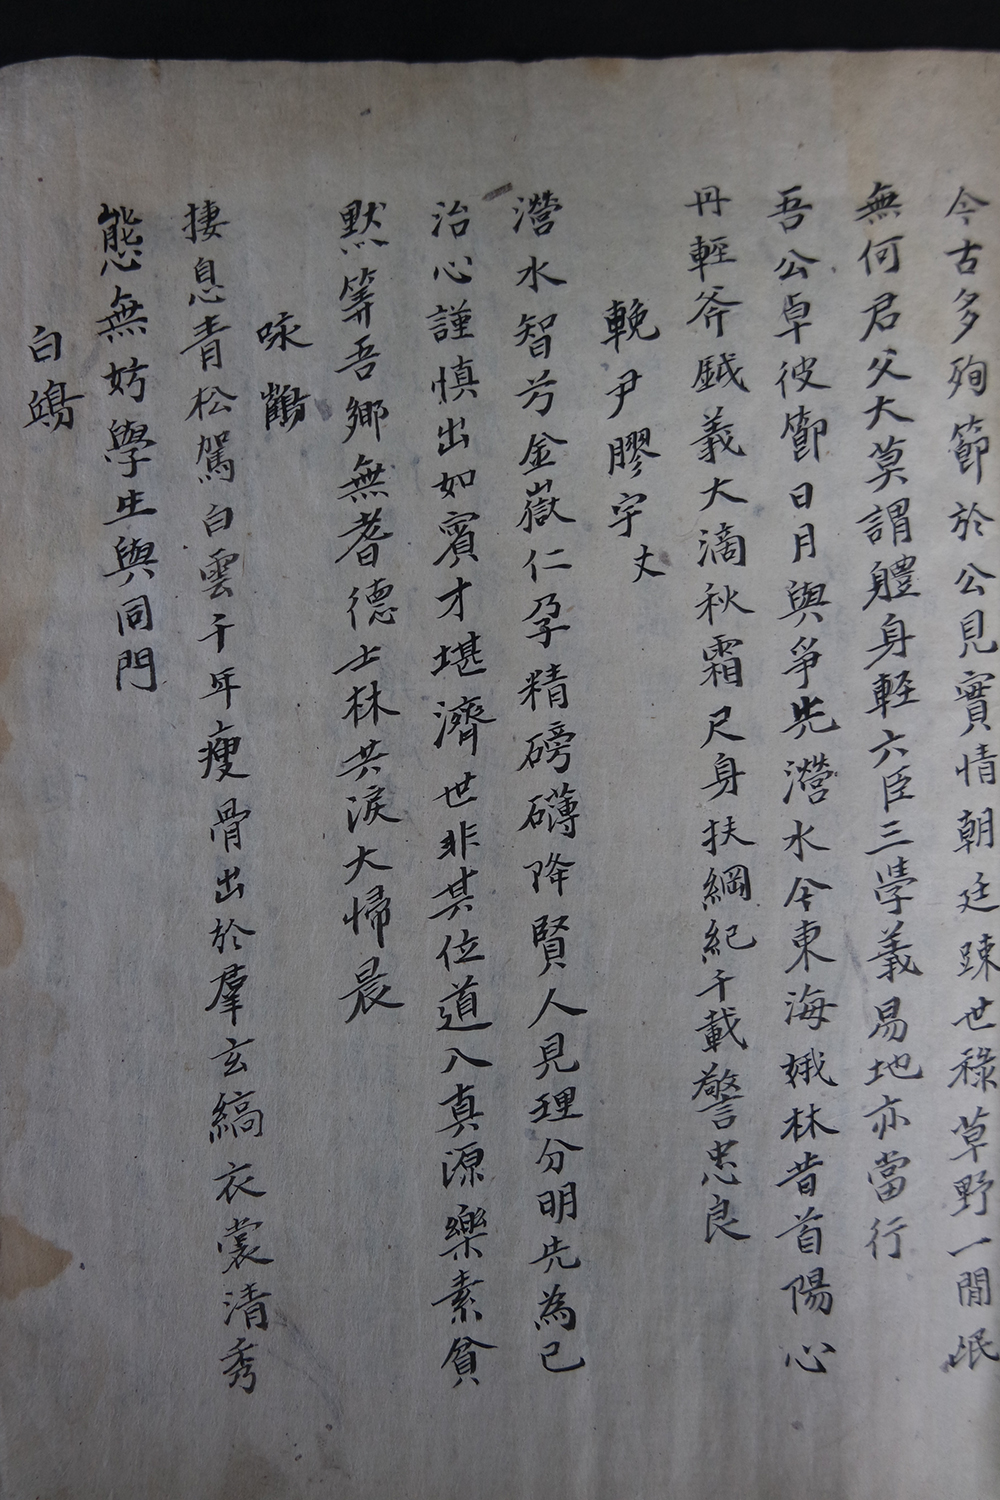 今古多殉節於公見實情朝廷踈世祿草野一閒氓
無何君父大莫謂軆身輕六臣三學義易地亦當行
吾公卓彼節日月與爭先瀯水今東海娥林昔首陽心
丹輕斧鉞義大滴秋霜尺身扶綱紀千載警忠良
輓尹膠宇丈
瀯水智兮金嶽仁孕精磅礴降賢人見理分明先為己
治心謹慎出如賓才堪濟世非其位道入真源樂素貧
默筭吾鄉無耆德士林共淚大歸晨
咏鶴
捿息青松駕白雲千年瘦骨出於羣玄縞衣裳清秀
態無妨學生與同門
白鷗